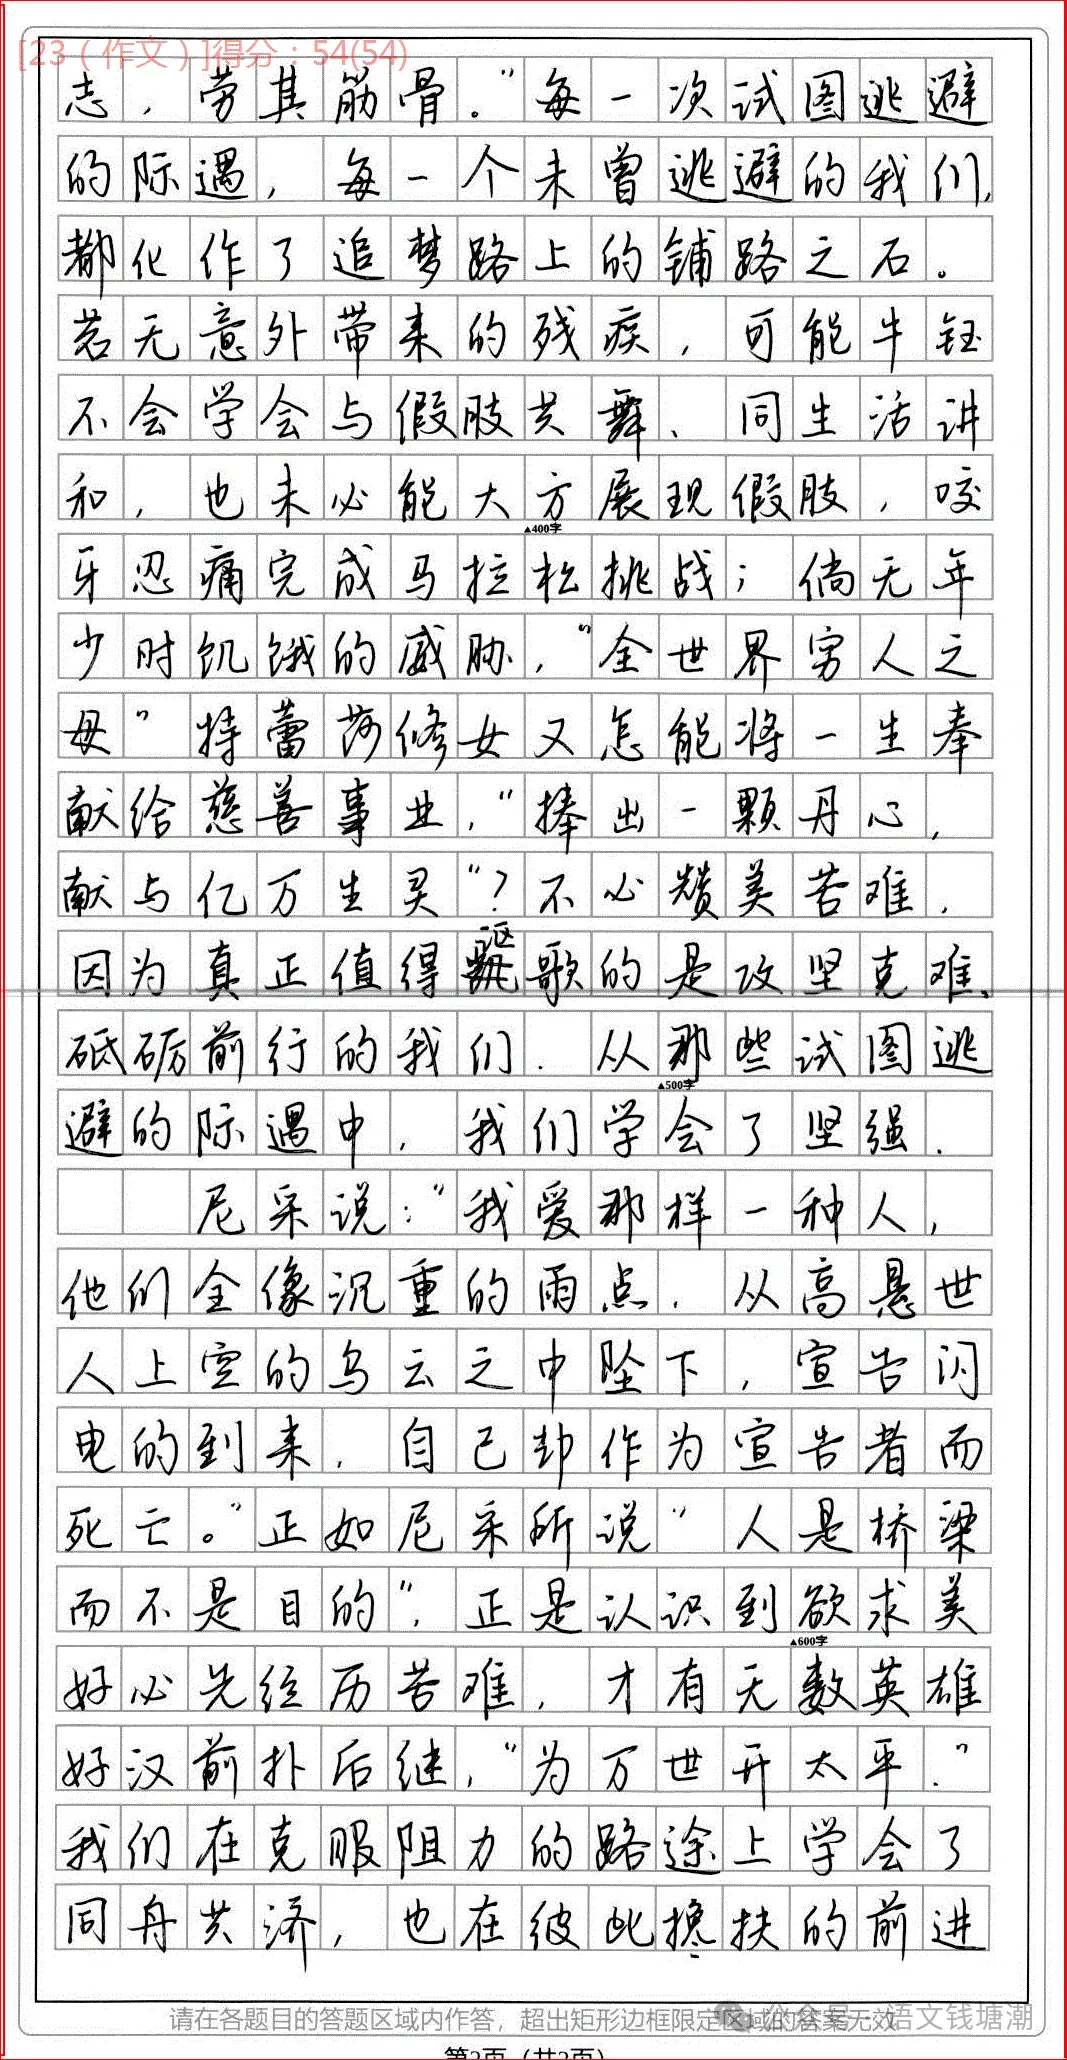 [23（作文）]得分：54(54)
志，劳其筋骨。”每一次试图逃避
的际遇，每一个未曾逃避的我们，
都化作了追梦路上的铺路之石。
若无意外带来的残疾，可能牛钰
不会学会与假肢共舞、同生活讲
和，也未必能大方展现假肢，咬
▲400字
牙忍痛完成马拉松挑战；倘无年
少时饥饿的威胁，“全世界穷人之
母”特蕾莎修女又怎能将一生奉
献给慈善事业，“捧出一颗丹心，
献与亿万生灵”？不必赞美苦难，
因为真正值得讴歌的是攻坚克难、
砥砺前行的我们．从那些试图逃
▲500字
避的际遇中，我们学会了坚强．
尼采说：“我爱那样一种人，
他们全像沉重的雨点．从高悬世
人上空的乌云之中坠下，宣告闪
电的到来．自己却作为宣告者而
死亡。”正如尼采所说“人是桥梁
而不是目的”，正是认识到欲求美
▲600字
好必先经历苦难，才有无数英雄
好汉前扑后继，“为万世开太平．”
我们在克服阻力的路途上学会了
同舟共济，也在彼此搀扶的前进
请在各题目的答题区域内作答，超出矩形边框限定区域的答案无效
公众号·语文钱塘潮
第2页（共2页）